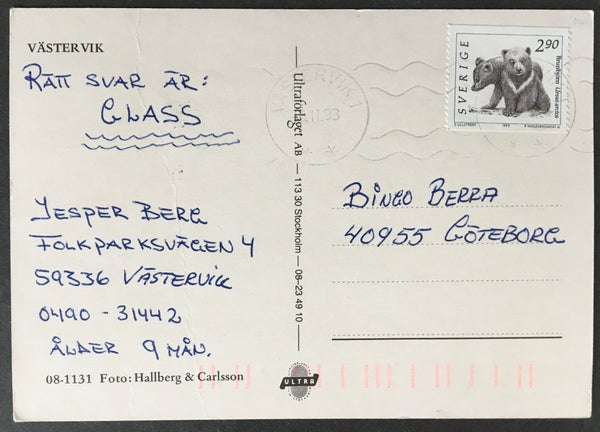 VÄSTERVIK
RÄTT SVAR ÄR:
GLASS
JESPER BERG
FOLKPARKSVÄGEN 4
59336 VÄSTERVIK
0490-31442
ÅLDER 9 MÅN.
08-1131 Foto: Hallberg & Carlsson
Ultraförlaget AB — 113 30 Stockholm — 08-23 49 10
ULTRA
VÄSTERVIK 1
.11.93
SVERIGE
2.90
Brunbjörn Ursus arctos
1993
BINGO BERRA
40955 GÖTEBORG